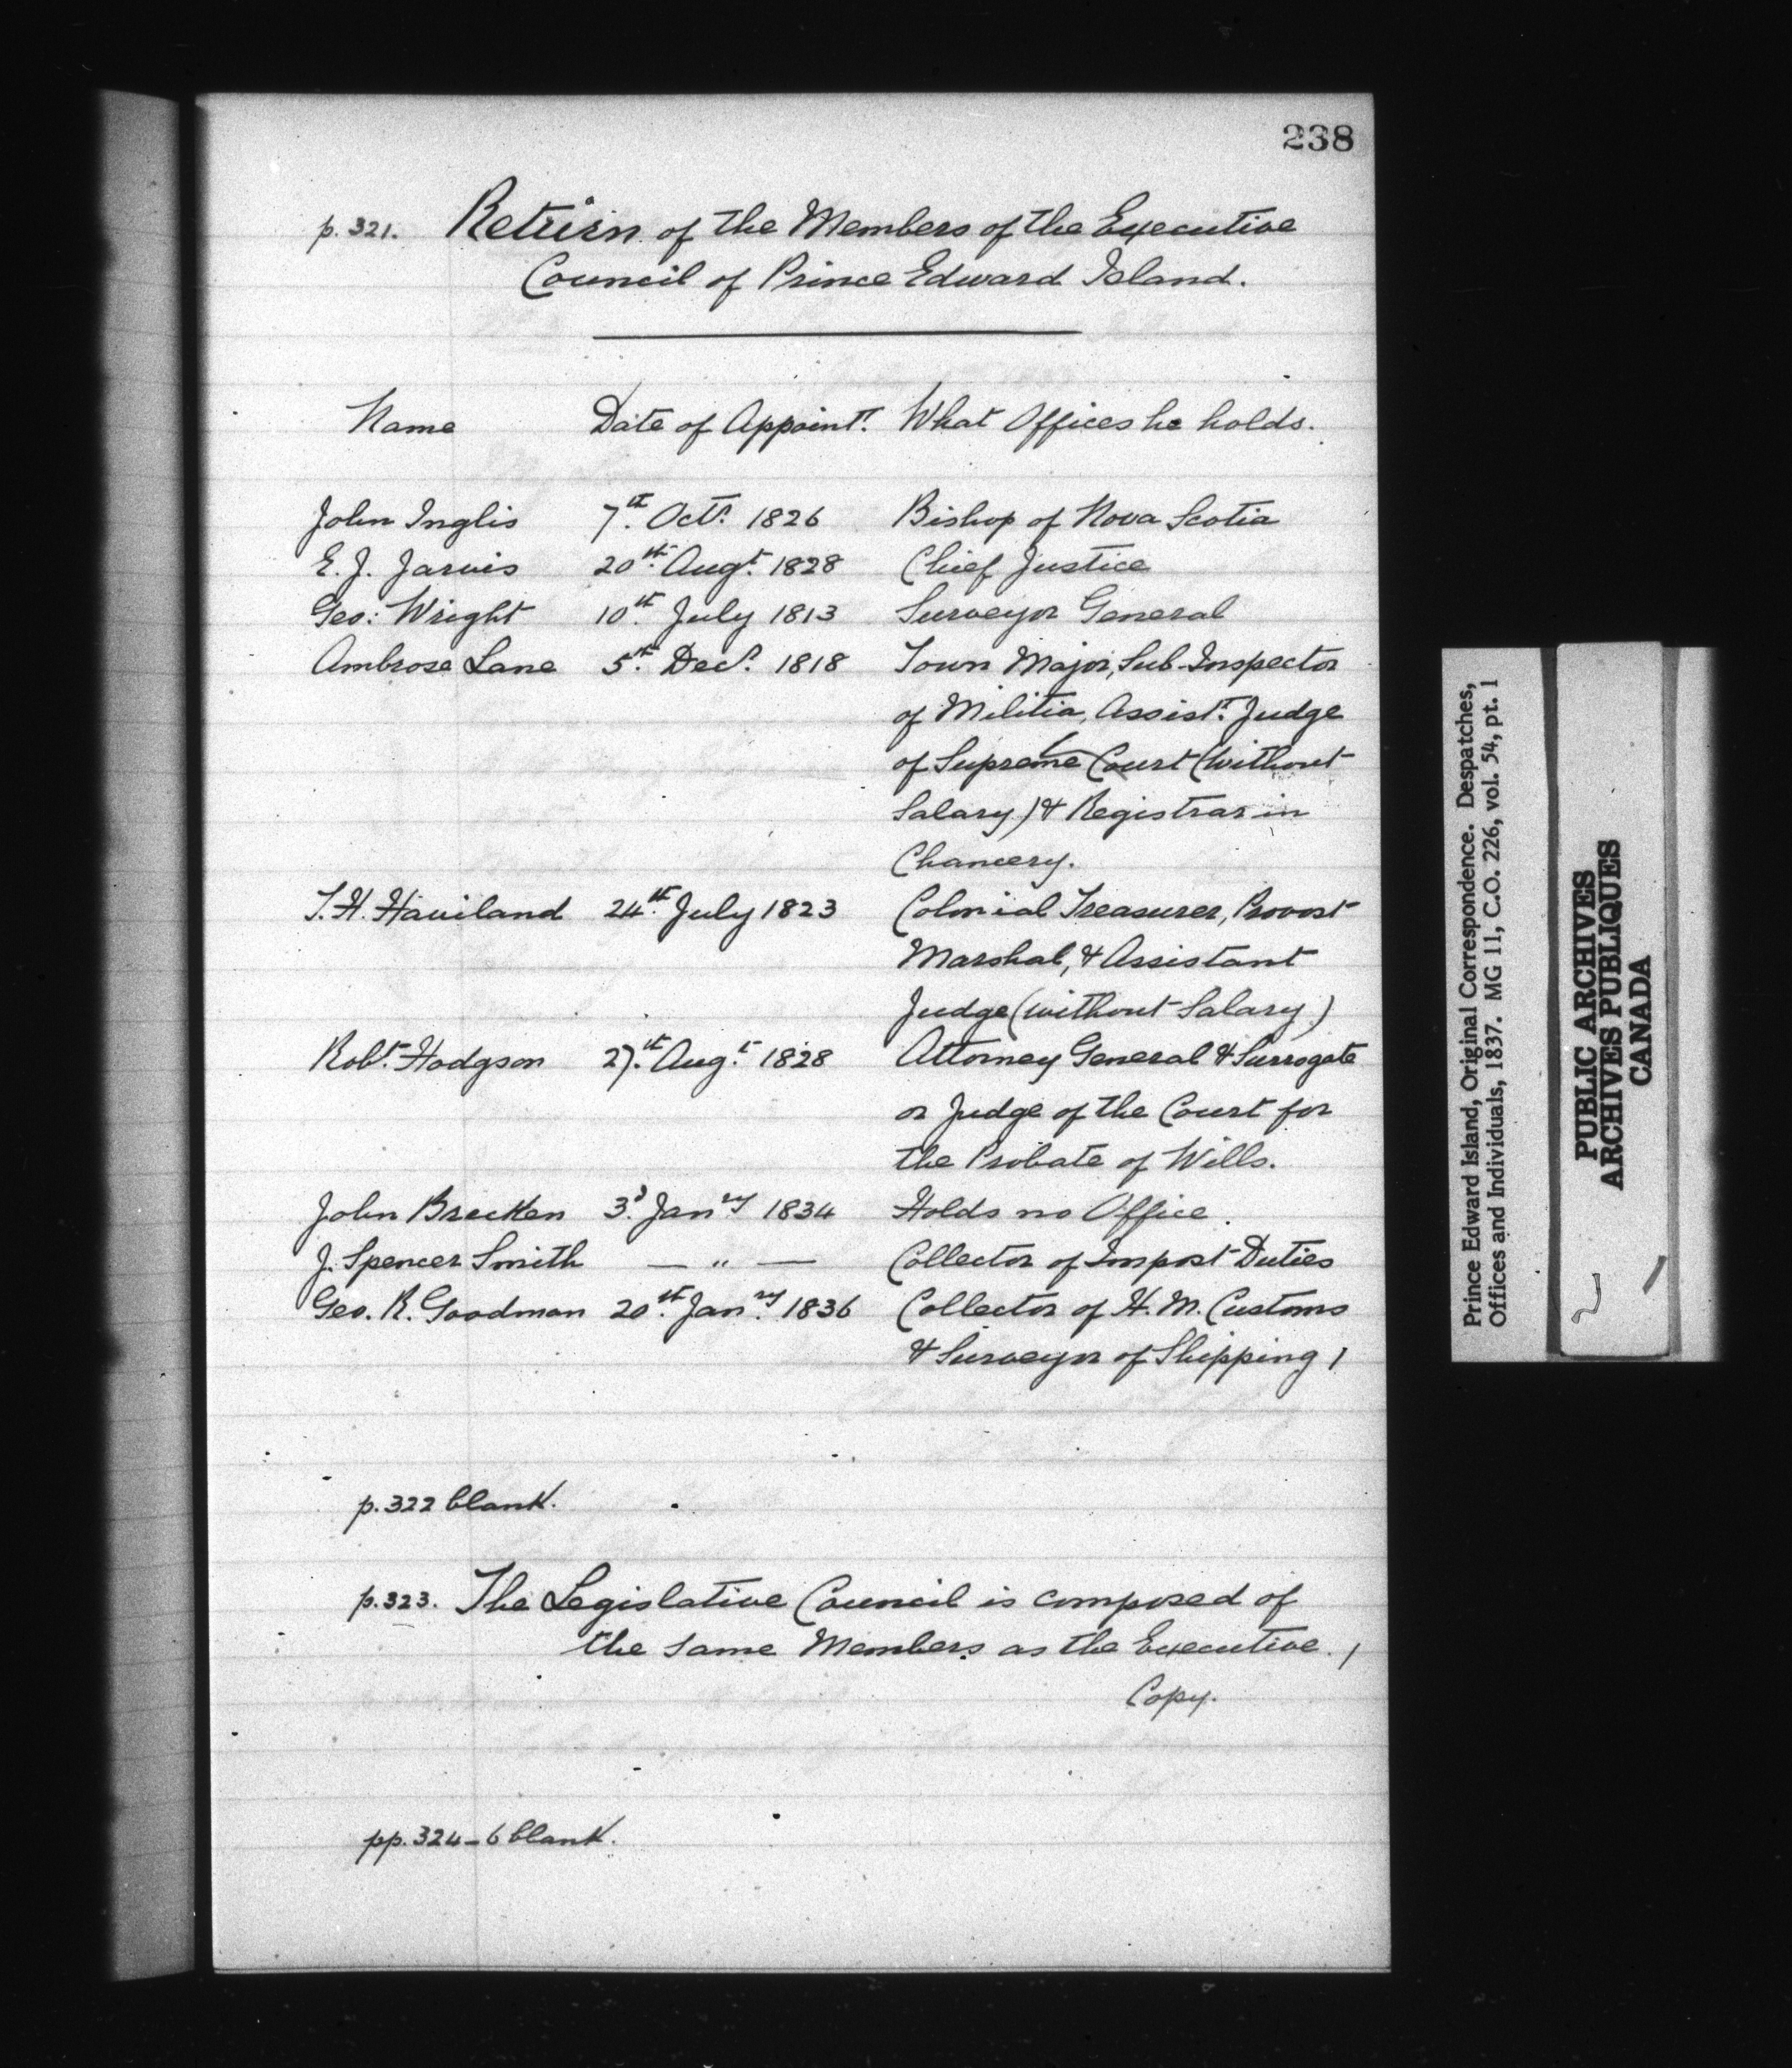 238
p. 321. Return of the Members of the Executive
Council of Prince Edward Island.
Name Date of Appoint.t What Offices he holds.
John Inglis 7th. Octr. 1826 Bishop of Nova Scotia
E. J. Jarvis 20th. Augt. 1828 Chief Justice
Geo: Wright 10th. July 1813 Surveyor General
Ambrose Lane 5th. Decr. 1818 Town Major, Sub-Inspector
of Militia, Assist.t Judge
of Supreme Court (without
Salary) & Registrar in
Chancery.
T. H. Haviland 24th. July 1823 Colonial Treasurer, Provost
Marshal, & Assistant
Judge (without Salary)
Robt. Hodgson 27th. Augt. 1828 Attorney General & Surrogate
or Judge of the Court for
the Probate of Wills.
John Brecken 3d. Janry 1834 Holds no Office.
J. Spencer Smith — " — Collector of Impost Duties
Geo. R. Goodman 20th. Janry. 1836 Collector of H. M. Customs
& Surveyor of Shipping /
p. 322 blank.
p. 323. The Legislative Council is composed of
the same Members as the Executive. /
Copy.
pp. 324-6 blank.
Prince Edward Island, Original Correspondence. Despatches,
Offices and Individuals, 1837. MG 11, C.O. 226, vol. 54, pt. 1
PUBLIC ARCHIVES
ARCHIVES PUBLIQUES
CANADA